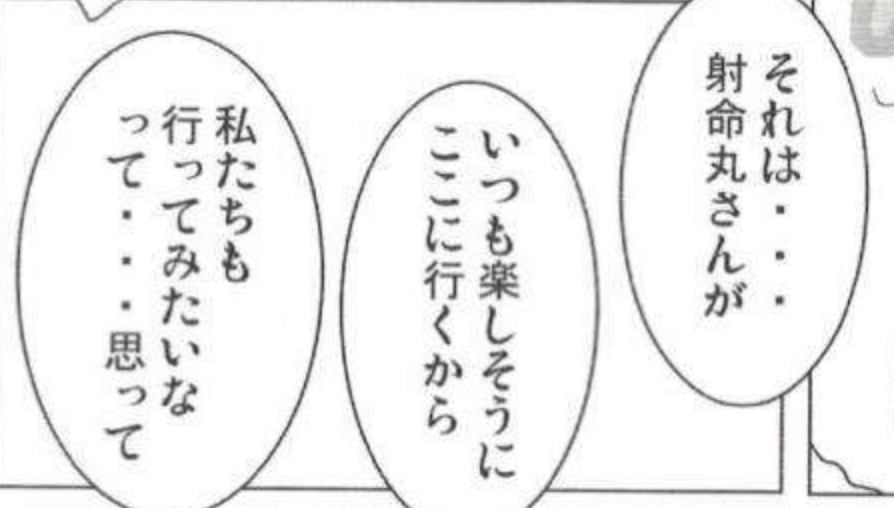 それは・・・
射命丸さんが
いつも楽しそうに
ここに行くから
私たちも
行ってみたいな
って・・・思って